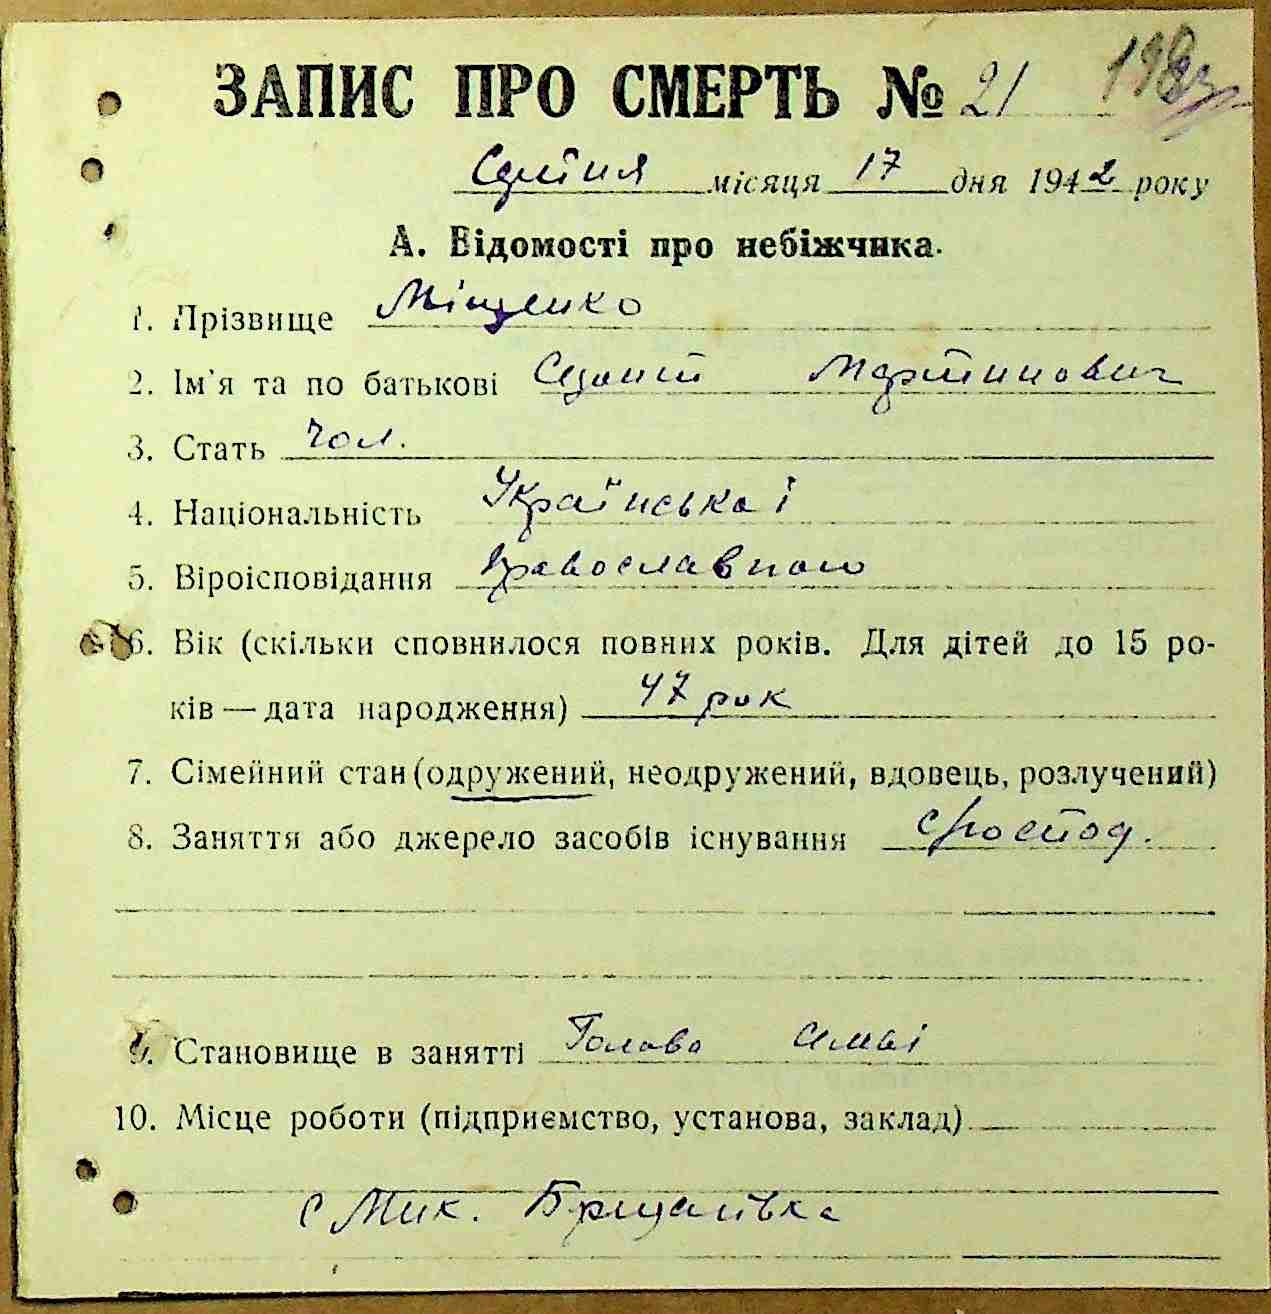 ЗАПИС ПРО СМЕРТЬ № 21
місяця 17 дня 1942 року
А. Відомості про небіжчика.
1. Прізвище Міщенко
2. Ім'я та по батькові Мартинович
3. Стать чол.
4. Національність Українськаі
5. Віроісповідання Православного
6. Вік (скільки сповнилося повних років. Для дітей до 15 ро-
ків — дата народження) 47 рок
7. Сімейний стан (одружений, неодружений, вдовець, розлучений)
8. Заняття або джерело засобів існування
9. Становище в занятті Голова симьі
10. Місце роботи (підприємство, установа, заклад)
с Мик.